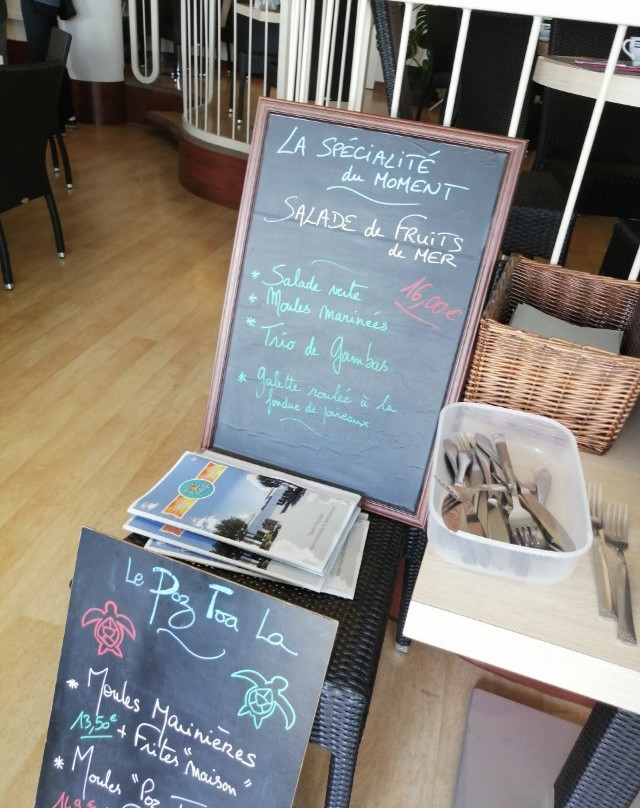 LA SPÉCIALITÉ
du MOMENT
SALADE de FRUITS
de MER
16,00€
* Salade verte
* Moules marinées
* Trio de Gambas
* Galette roulée à la
fondue de poireaux
Le Poz Toa La
* Moules Marinières
13,50€ + Frites "maison"
* Moules "Poz